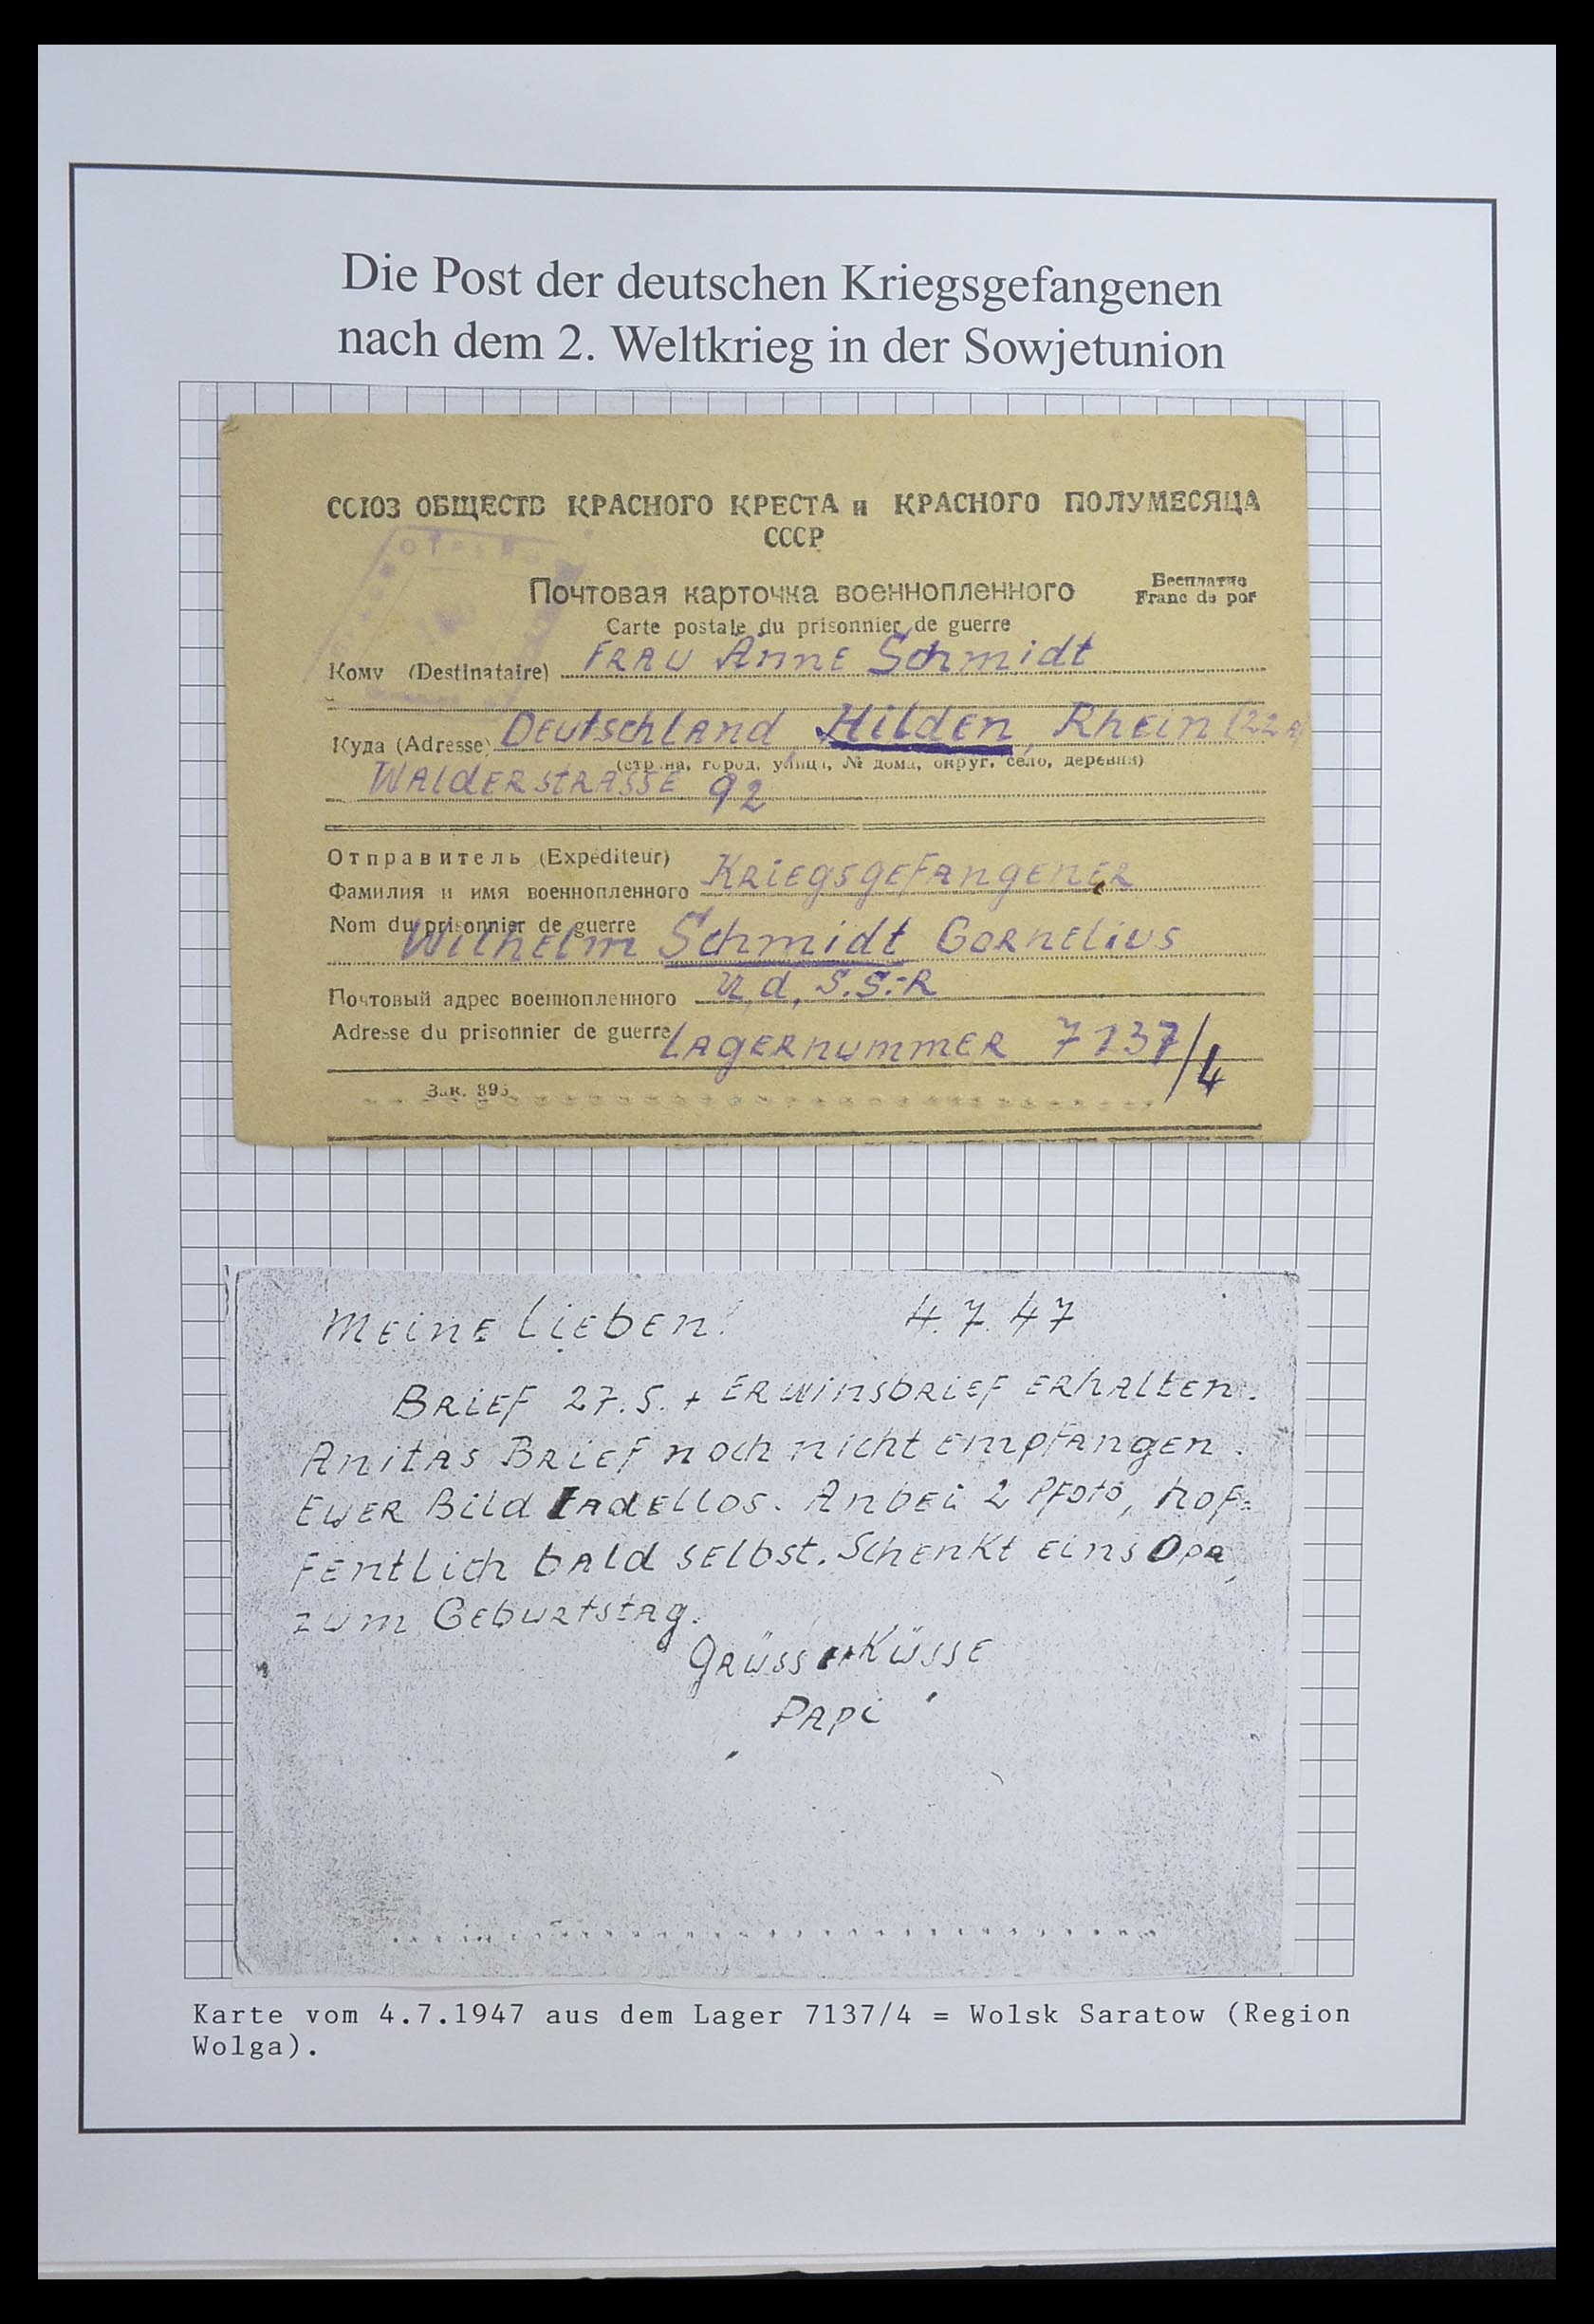 Die Post der deutschen Kriegsgefangenen
nach dem 2. Weltkrieg in der Sowjetunion
СОЮЗ ОБЩЕСТВ КРАСНОГО КРЕСТА и КРАСНОГО ПОЛУМЕСЯЦА
СССР
Почтовая карточка военнопленного
Бесплатно
Franc de por
Carte postale du prisonnier de guerre
Кому (Destinataire) Frau Anne Schmidt
Куда (Adresse) Deutschland, Hilden, Rhein (22a)
(страна, город, улица, № дома, округ, село, деревня)
Walderstrasse 92
Отправитель (Expéditeur)
Фамилия и имя военнопленного Kriegsgefangener
Nom du prisonnier de guerre
Wilhelm Schmidt Cornelius
Почтовый адрес военнопленного U.d.S.S.-R
Adresse du prisonnier de guerre Lagernummer 7137/4
Зак. 895
Meine Lieben! 4.7.47
Brief 27.5. + Erwinsbrief erhalten.
Anitas Brief noch nicht empfangen.
Euer Bild tadellos. Anbei 2 Pfoto, hof=
fentlich bald selbst. Schenkt eins Opa,
zum Geburtstag.
Grüsse + Küsse
Papi
Karte vom 4.7.1947 aus dem Lager 7137/4 = Wolsk Saratow (Region
Wolga).